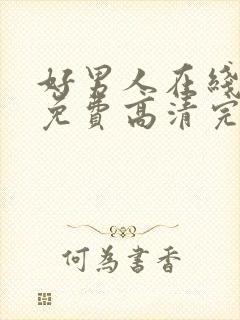 好男人在綫
免費高清完
何為書香